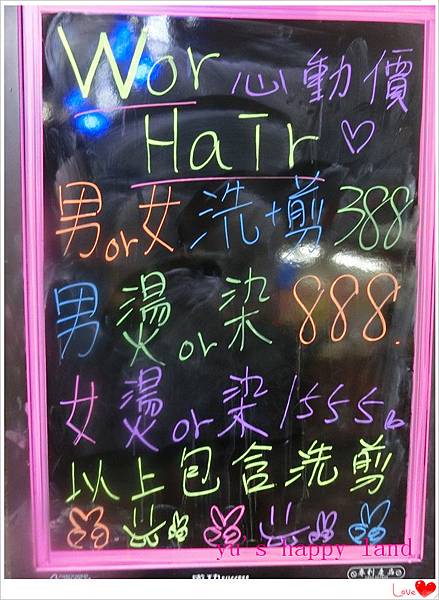 Wor 心動價
HaIr
男or女 洗+剪 388
男 燙or染 888.
女 燙or染 1555.
以上包含洗剪
yu's happy land
SUCCESS
專利產品
Love